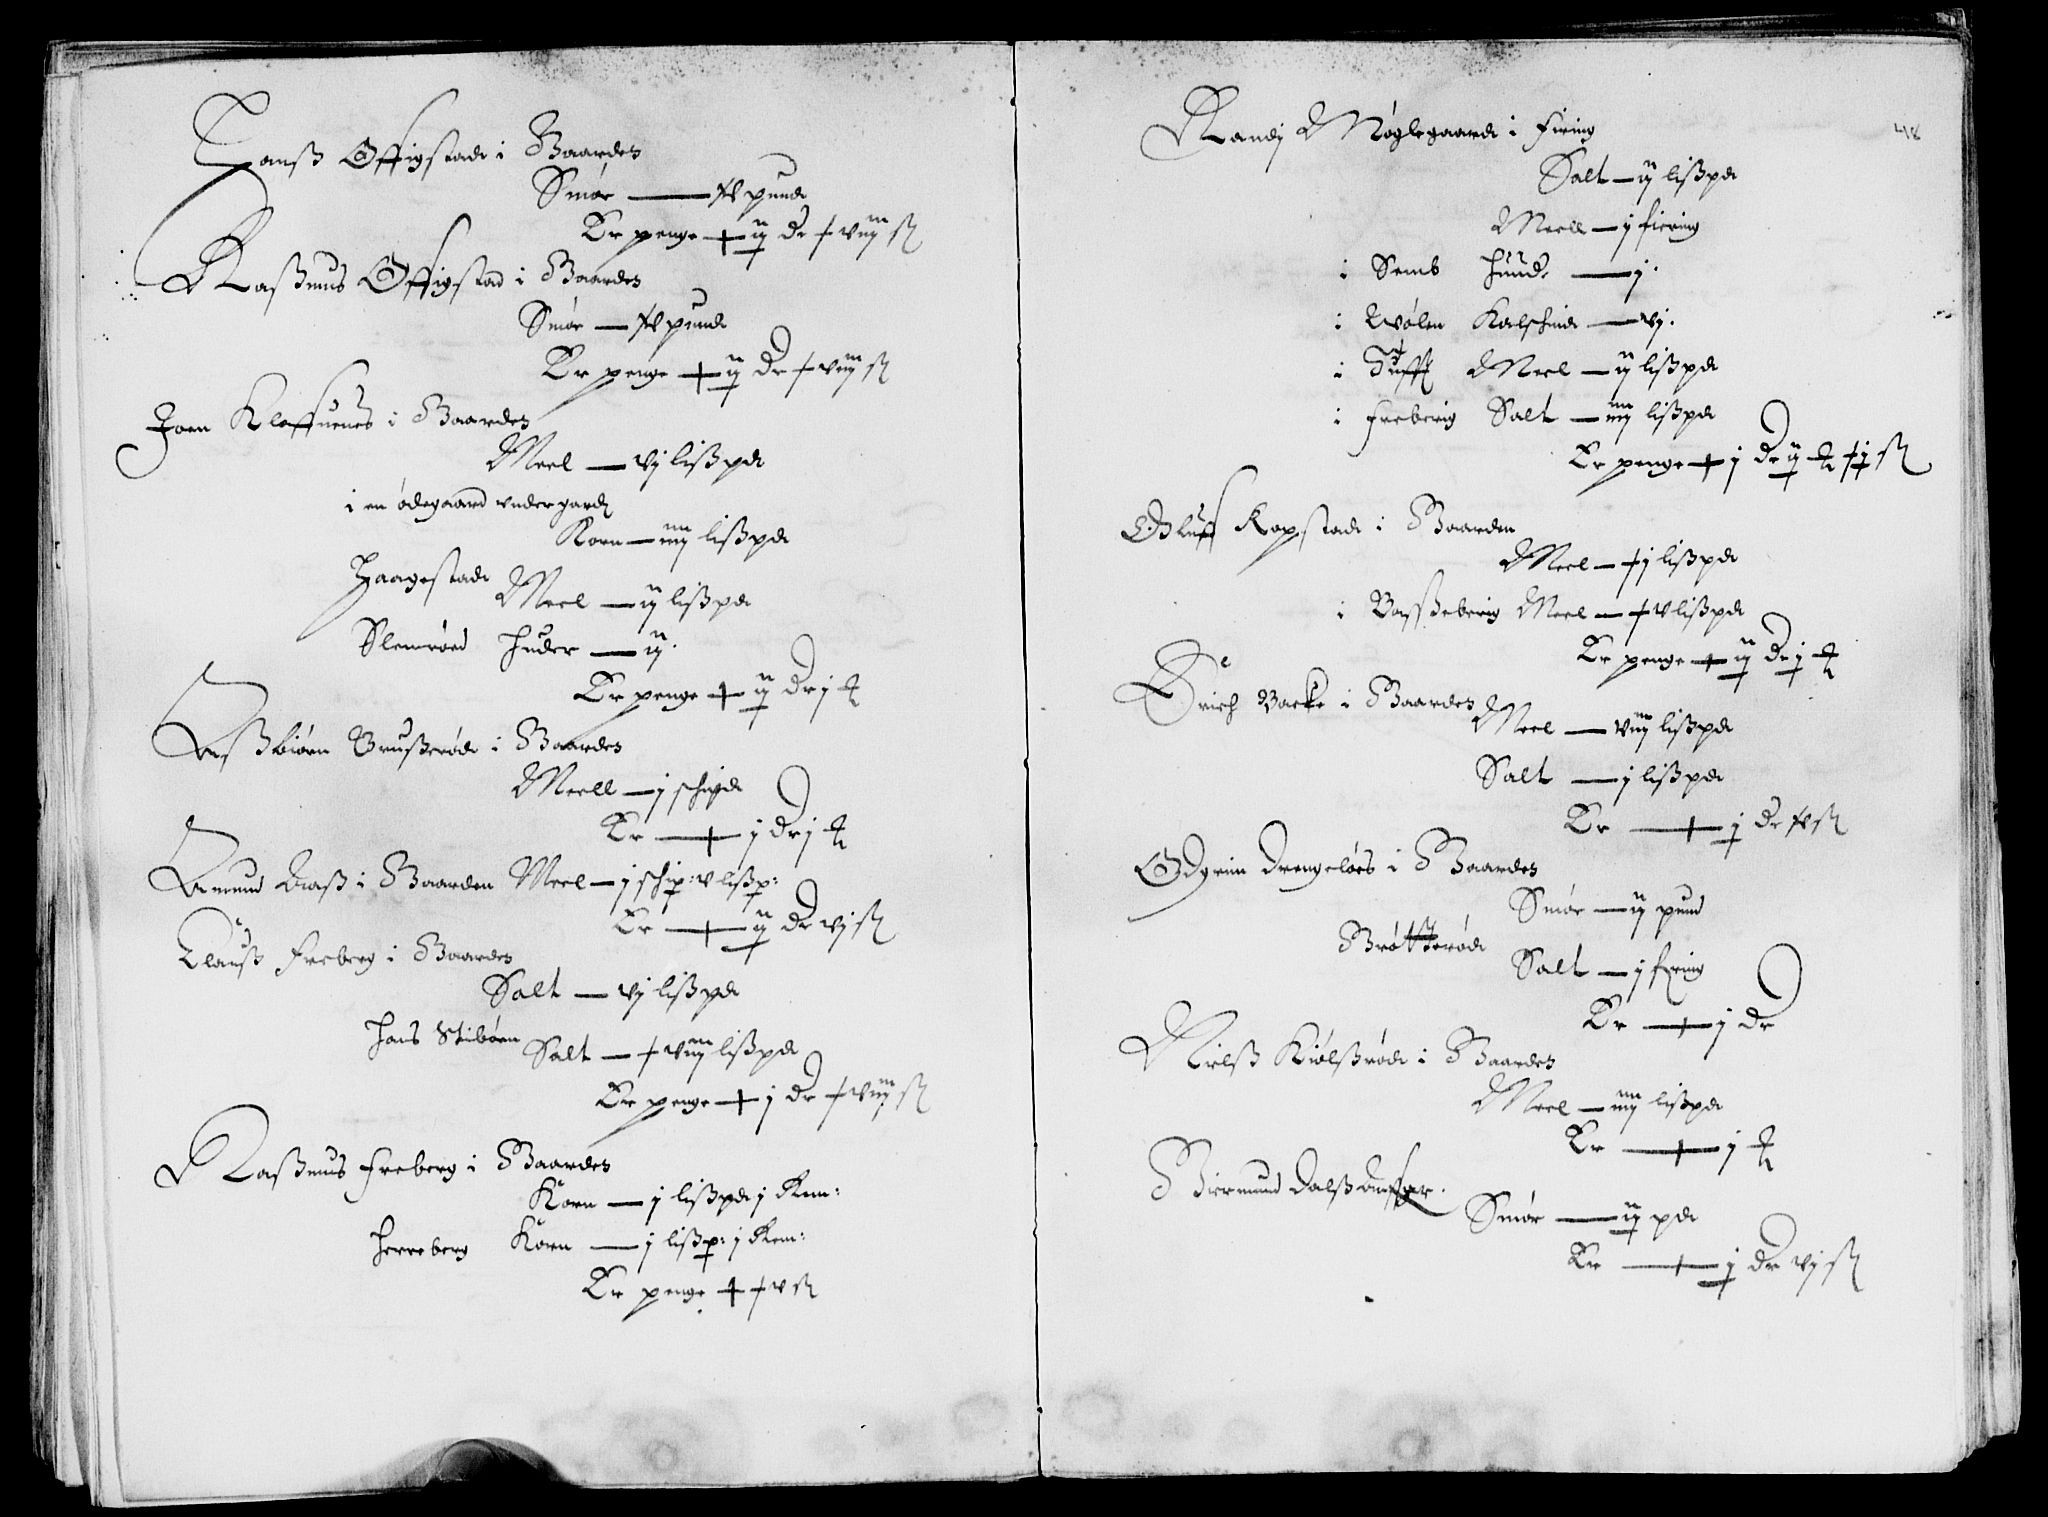 Hanß Offigstade i Baardes
Smør — pund
Er penge ij dr viij ß
Raßmus Offigstad i Baardes
Smør — pund
Er penge ij dr viij ß
Joen Kleffuenes i Baardes
Meel — vj lißpd
i en ødegaard
Korn — iiij lißpd
Haagestade Meel — ij lißpd
Slemrøed huder — ij.
Er penge ij dr j
Aßbiørn Brußerøde i Baardes
Meell — j schipd
Er — j dr j
Amund Aaß i Baarden Meel — j schip: v lißp:
Er — ij dr vj ß
Clauß Freberg i Baardes
Salt — vj lißpd
hans Stibøen Salt — viij lißpd
Er penge j dr viij ß
Raßmus Freberg i Baardes
Korn — j lißpd j Rem:
Herreberg Korn — j lißp: j Rem:
Er penge v ß
48
Randj Møglegaard i Fiering
Salt — ij lißpd
Meell — j fiering
i Semb hund — j.
i Wølen Kalschind — vj.
i Meel — ij lißpd
i Freberig Salt — iiij lißpd
Er penge j dr ij ß
Oluff Kopstade i Baarden
Meel — j lißpd
i Basseberig Meel — v lißpd
Er penge ij dr j
Erich Backe i Baardes
Meel — viij lißpd
Salt — j lißpd
Er — j dr ß
Odgrim Drengeløes i Baardes
Smør — ij pund
Brøtterøde Salt — j fiering
Er — j dr
Nielß Kiølßrøde i Baardes
Meel — iiij lißpd
Er — j
Biermund Dalß
Smør — ij pd
Er — j dr vj ß